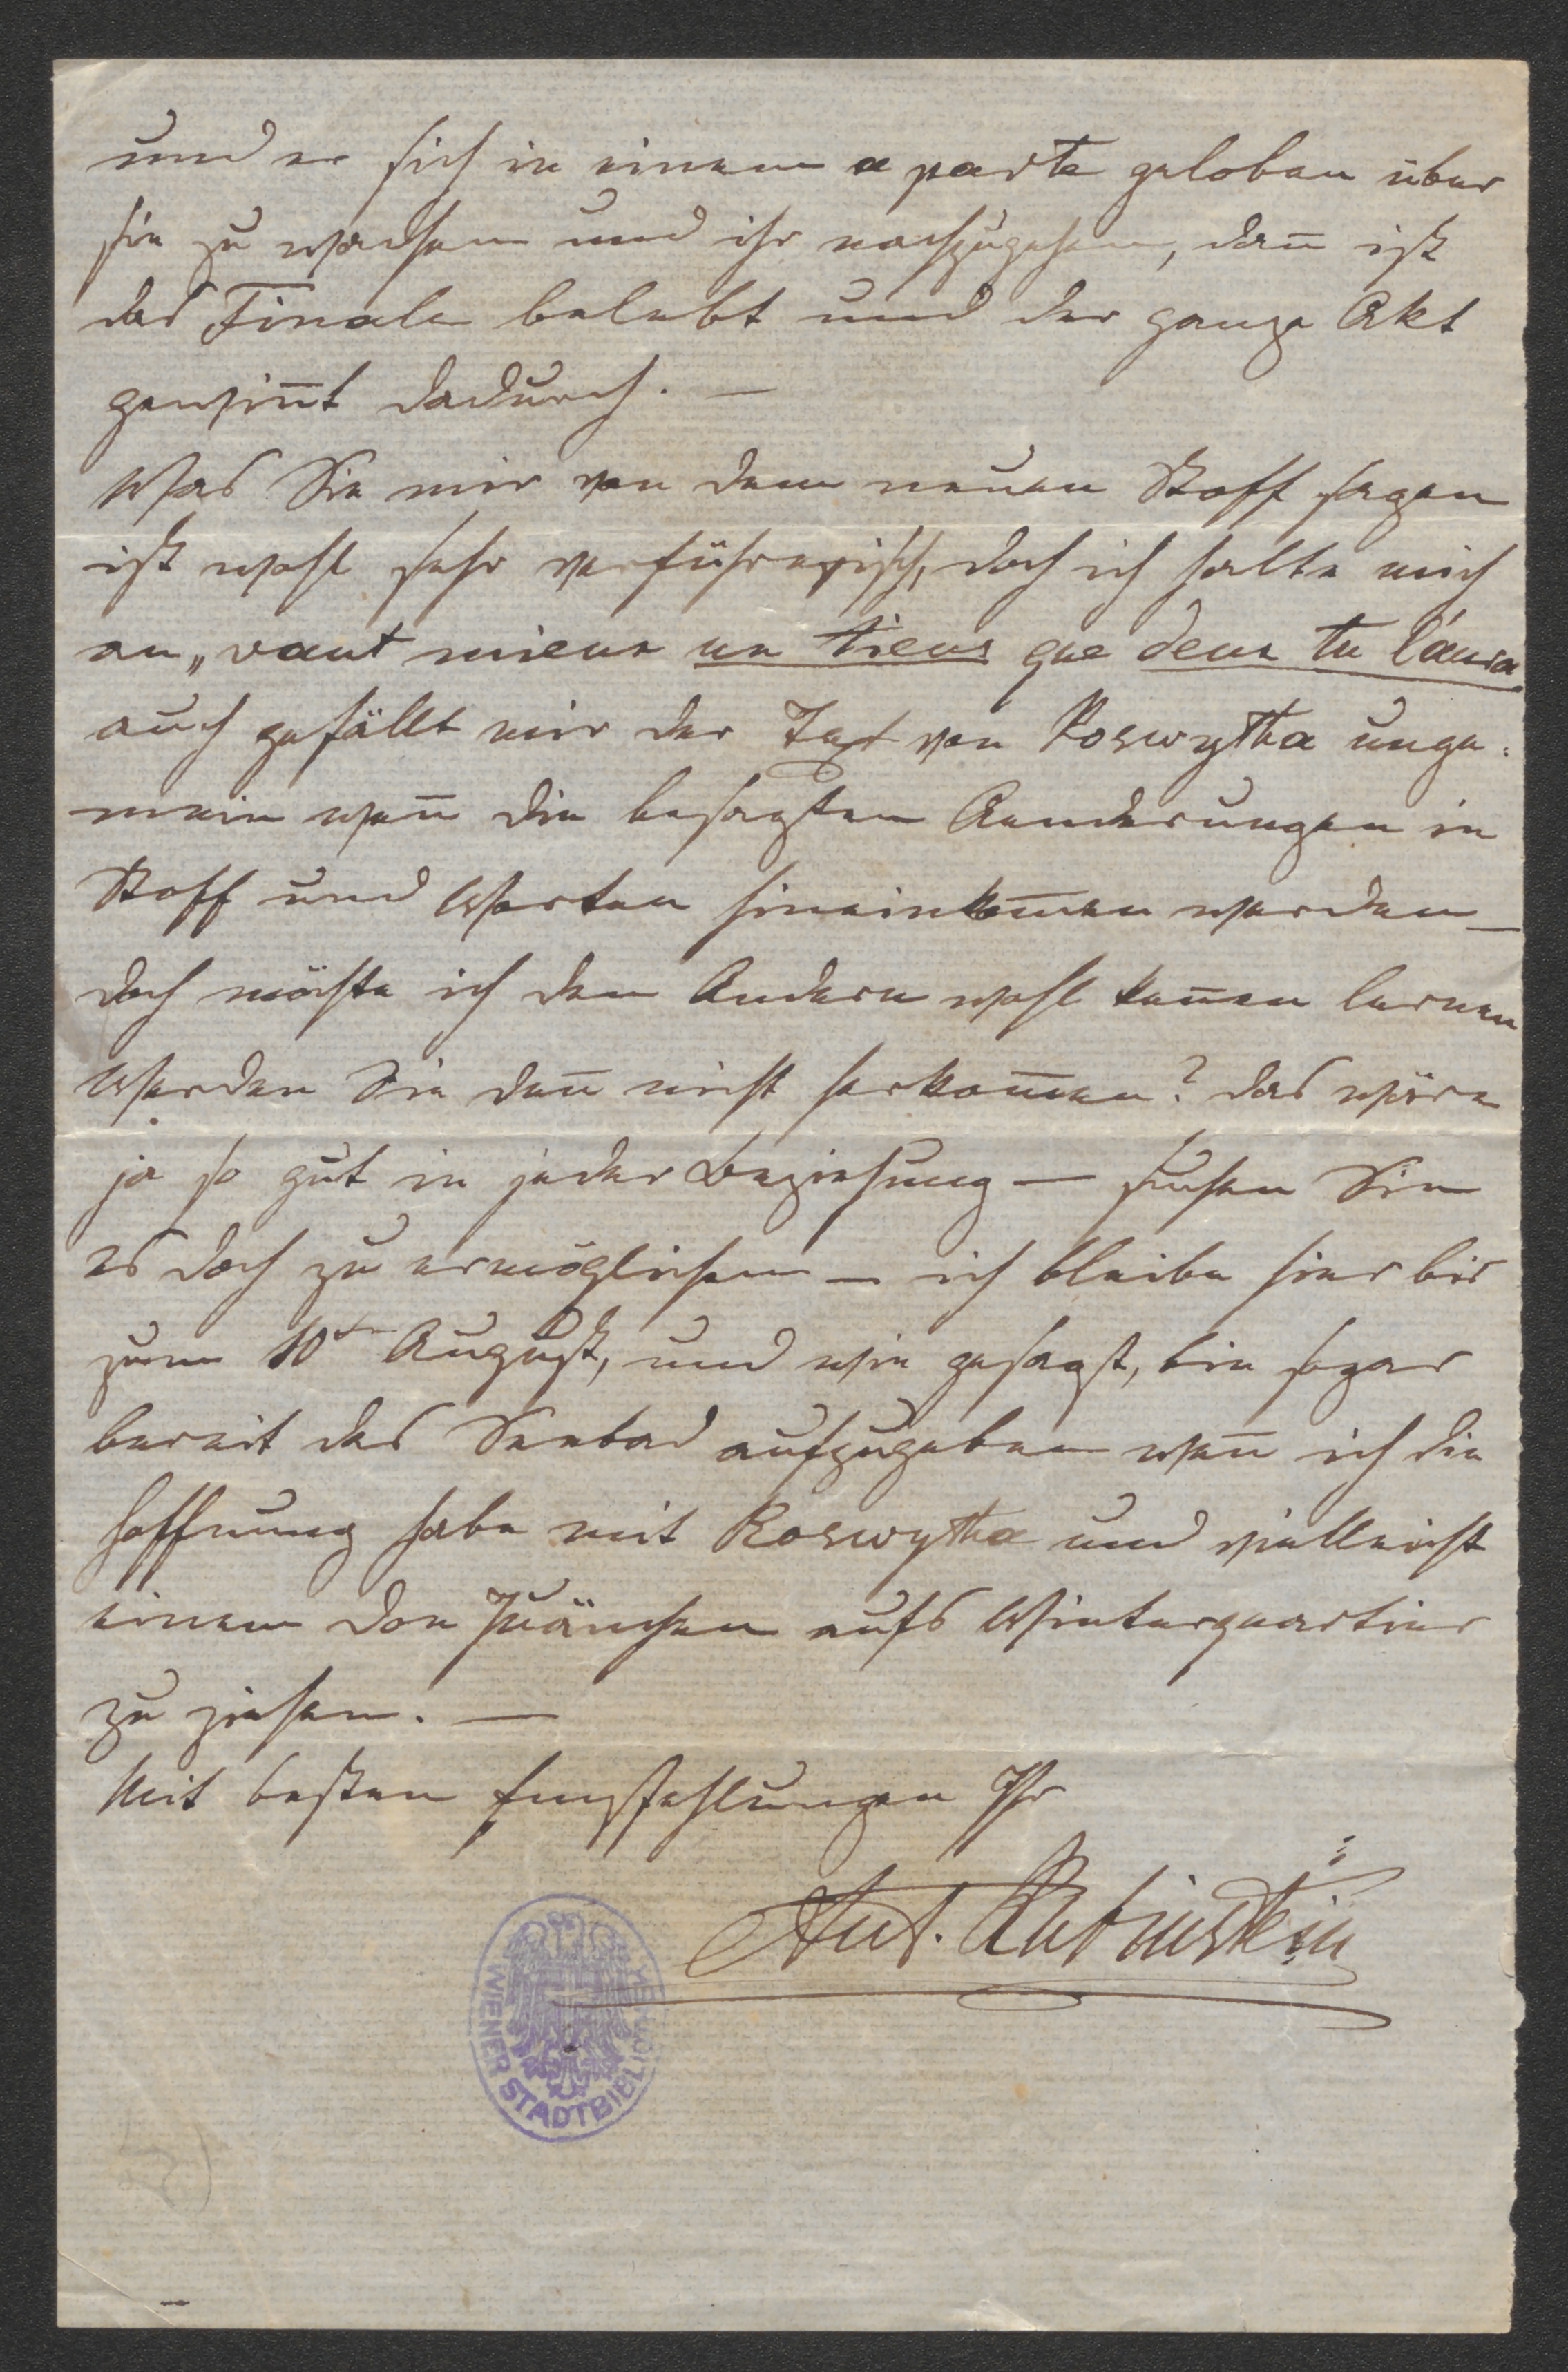 und er sich in einem a parte geloben über
sie zu wachen und ihr nachzugehen, dan̅ ist
das Finale belebt und der ganze Akt
gewin̅t dadurch. —
Was Sie mir von dem neuen Stoff sagen
ist wohl sehr verführerisch, doch ich halte mich
an „vaut mieux un tiens que deux tu l'auras
auch gefällt mir der Text von Roswytha unge:
mein wen̅ die besagten Aenderungen in
Stoff und Worten hineinkom̅en werden —
doch möchte ich den Andern wohl ken̅en lernen
Werden Sie den̅ nicht herkom̅en? das wäre
ja so gut in jeder Beziehung — suchen Sie
es doch zu ermöglichen — ich bleibe hier bis
zum 10ten August, und wie gesagt, bin sogar
bereit das Seebad aufzugeben wen̅ ich die
Hoffnung habe mit Roswytha und vielleicht
einem Don Juänchen aufs Winterquartier
zu ziehen. —
Mit besten Empfehlungen Ihr
Ant. Rubinstein
WIENER STADTBIBLIOTHEK